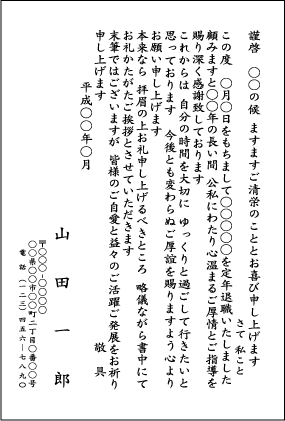 謹啓　〇〇の候 ますますご清栄のこととお喜び申し上げます
さて 私こと
この度　〇月〇日をもちまして〇〇〇〇〇を定年退職いたしました
顧みますと〇〇年の長い間 公私にわたり心温まるご厚情とご指導を
賜り深く感謝致しております
これからは 自分の時間を大切に ゆっくりと過ごして行きたいと
思っております　今後とも変わらぬご厚誼を賜りますよう心より
お願い申し上げます
本来なら 拝眉の上お礼申し上げるべきところ　略儀ながら書中にて
お礼かたがたご挨拶とさせていただきます
末筆ではございますが 皆様のご自愛と益々のご活躍ご発展をお祈り
申し上げます
敬具
平成〇〇年〇月
山田一郎
〒〇〇〇-〇〇〇〇
〇〇県〇〇市〇〇町二丁目〇番〇〇号
電話（一二三）四五六ー七八九〇